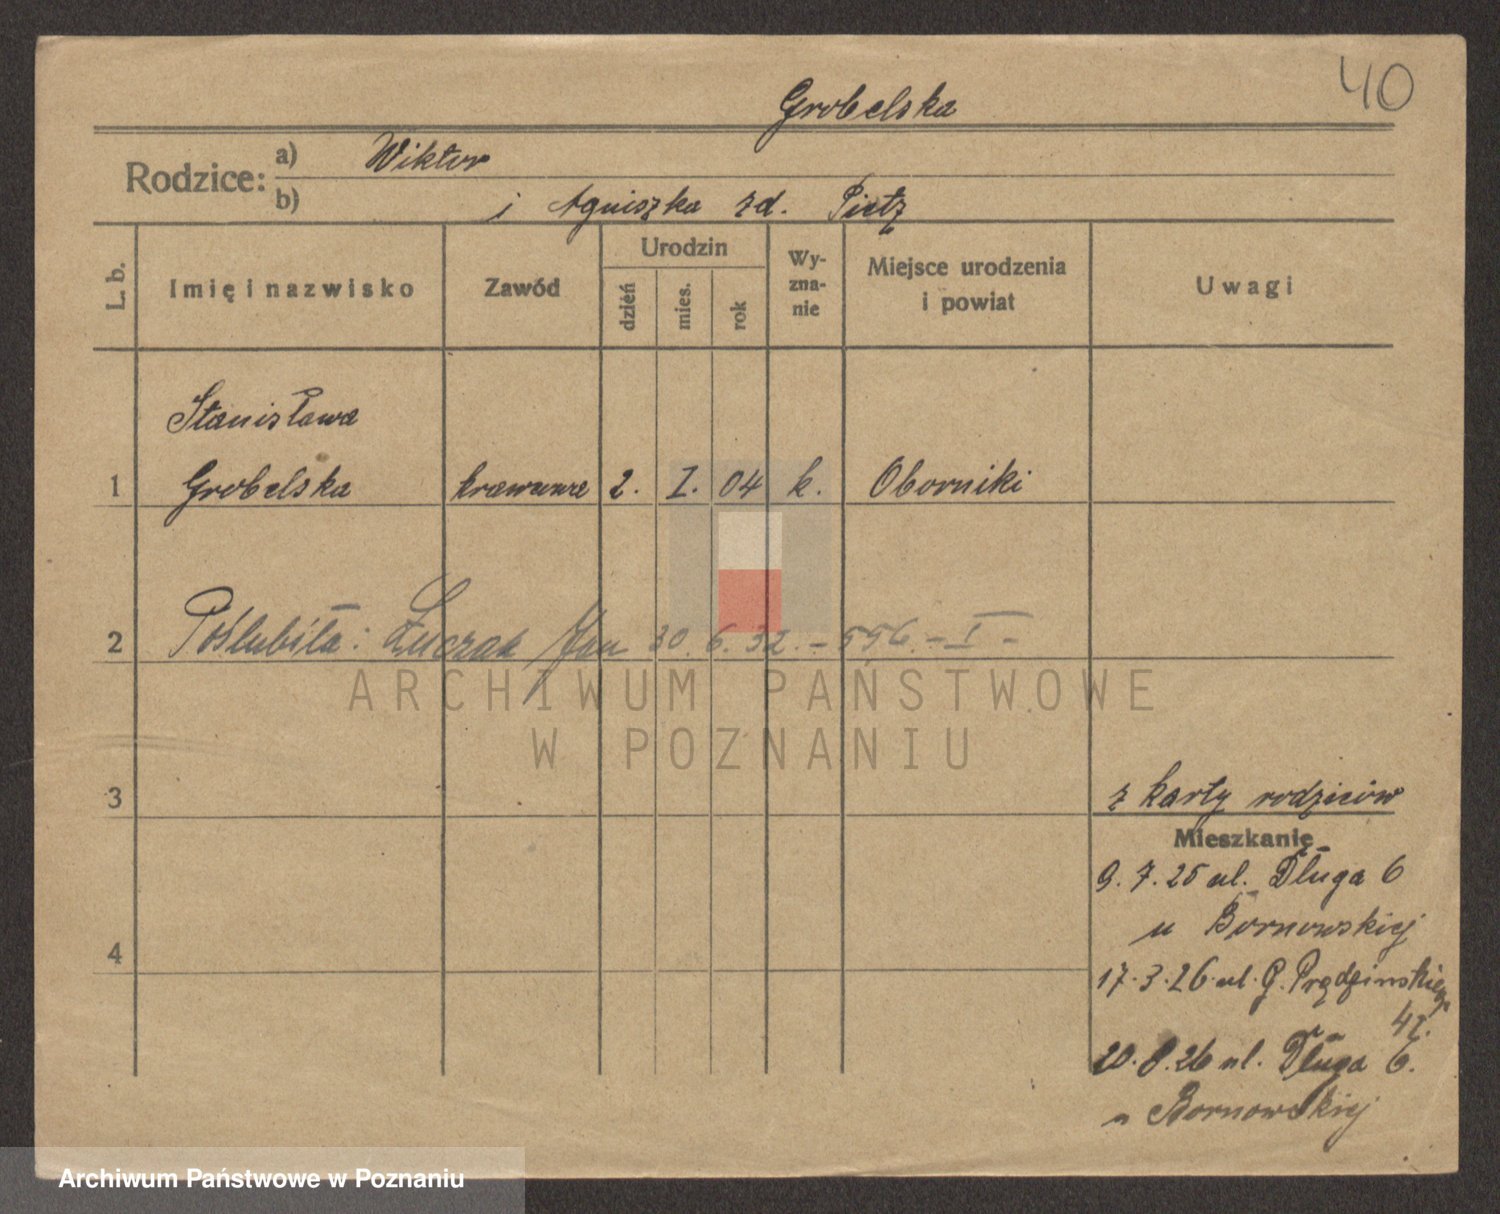 40
Grobelska
Rodzice: a) Wiktor
b) i Agnieszka zd. Pietz
L. b.
Imię i nazwisko
Zawód
Urodzin
dzień
mies.
rok
Wy-
zna-
nie
Miejsce urodzenia
i powiat
Uwagi
Stanisława
1 Grobelska krawcowa 2. I. 04 k. Oborniki
2 Poślubiła: Łuczak Jan 30.6.32. – 556. – I –
ARCHIWUM PAŃSTWOWE
W POZNANIU
3
z karty rodziców
Mieszkanie
9.7.25 ul. Długa 6
u Bornowskiej
4
17.3.26 ul. G. Prądzińskiego
4 I.
20.8.26 ul. Długa 6.
u Bornowskiej
Archiwum Państwowe w Poznaniu